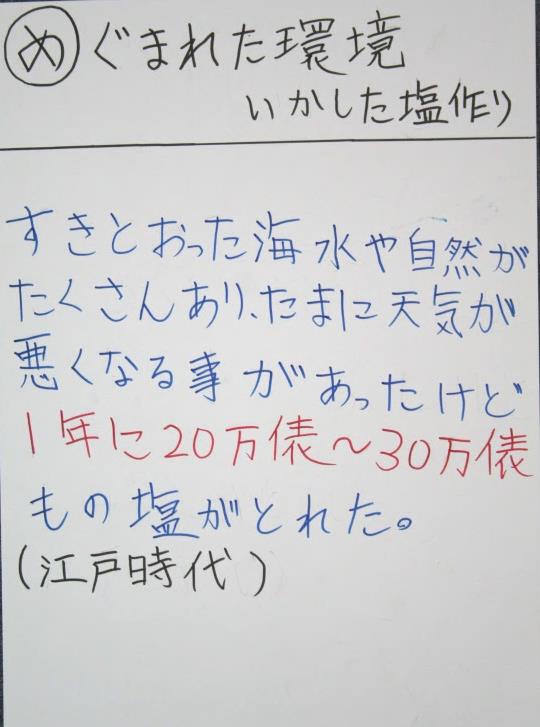 めぐまれた環境
いかした塩作り
すきとおった海水や自然が
たくさんあり、たまに天気が
悪くなる事があったけど
1年に20万俵〜30万俵
もの塩がとれた。
(江戸時代)